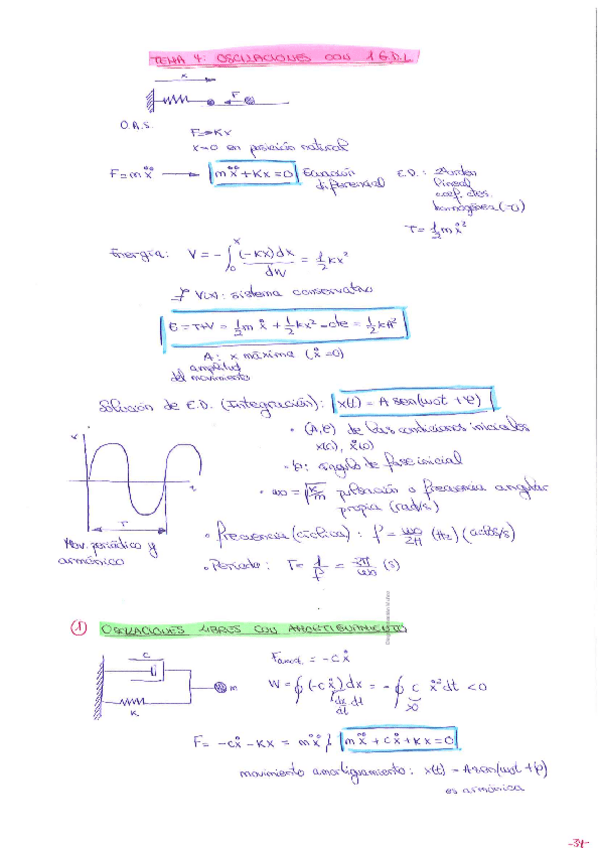 TEMA 4: OSCILACIONES CON 1 G.D.L.
x
F
O.A.S.
F=-Kx
x=0 en posición natural
F=mẍ → mẍ+Kx=0 Ecuación diferencial
E.D.: 2º orden
lineal
coef. ctes.
homogénea (=0)
T=½mẋ²
Energía: V = -∫₀ˣ (-Kx)dx = ½Kx²
dW
∃ V(x): sistema conservativo
E = T+V = ½mẋ + ½Kx² = cte = ½KA²
A: x máxima (ẋ=0)
amplitud
del movimiento
Solución de E.D. (Integración): x(t) = A sen(ω₀t + φ)
• (A,φ) de las condiciones iniciales
x(0), ẋ(0)
• φ: ángulo de fase inicial
• ω₀ = √(K/m) pulsación o frecuencia angular
propia (rad/s)
x
t
T
Mov. periódico y
armónico
• Frecuencia (cíclica): f = ω₀/2π (Hz) (ciclos/s)
• Período: T = 1/f = 2π/ω₀ (s)
① OSCILACIONES LIBRES CON AMORTIGUAMIENTO
C
K
m
Famort. = -cẋ
W = ∮(-cẋ)dx = -∮ c ẋ²dt < 0
dx/dt dt
>0
F = -cẋ - Kx = mẍ; mẍ + cẋ + Kx = 0
movimiento amortiguamiento: x(t) = A sen(ω₀t + φ)
es armónica
-34-